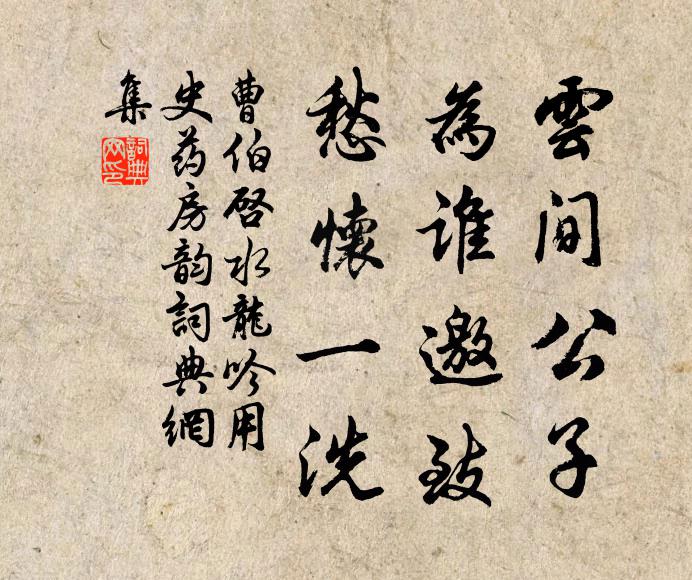 雲間公子
為誰邀致
愁懷一洗
曹伯啓水龍吟用
史药房韵詞典網
集
詞典网印